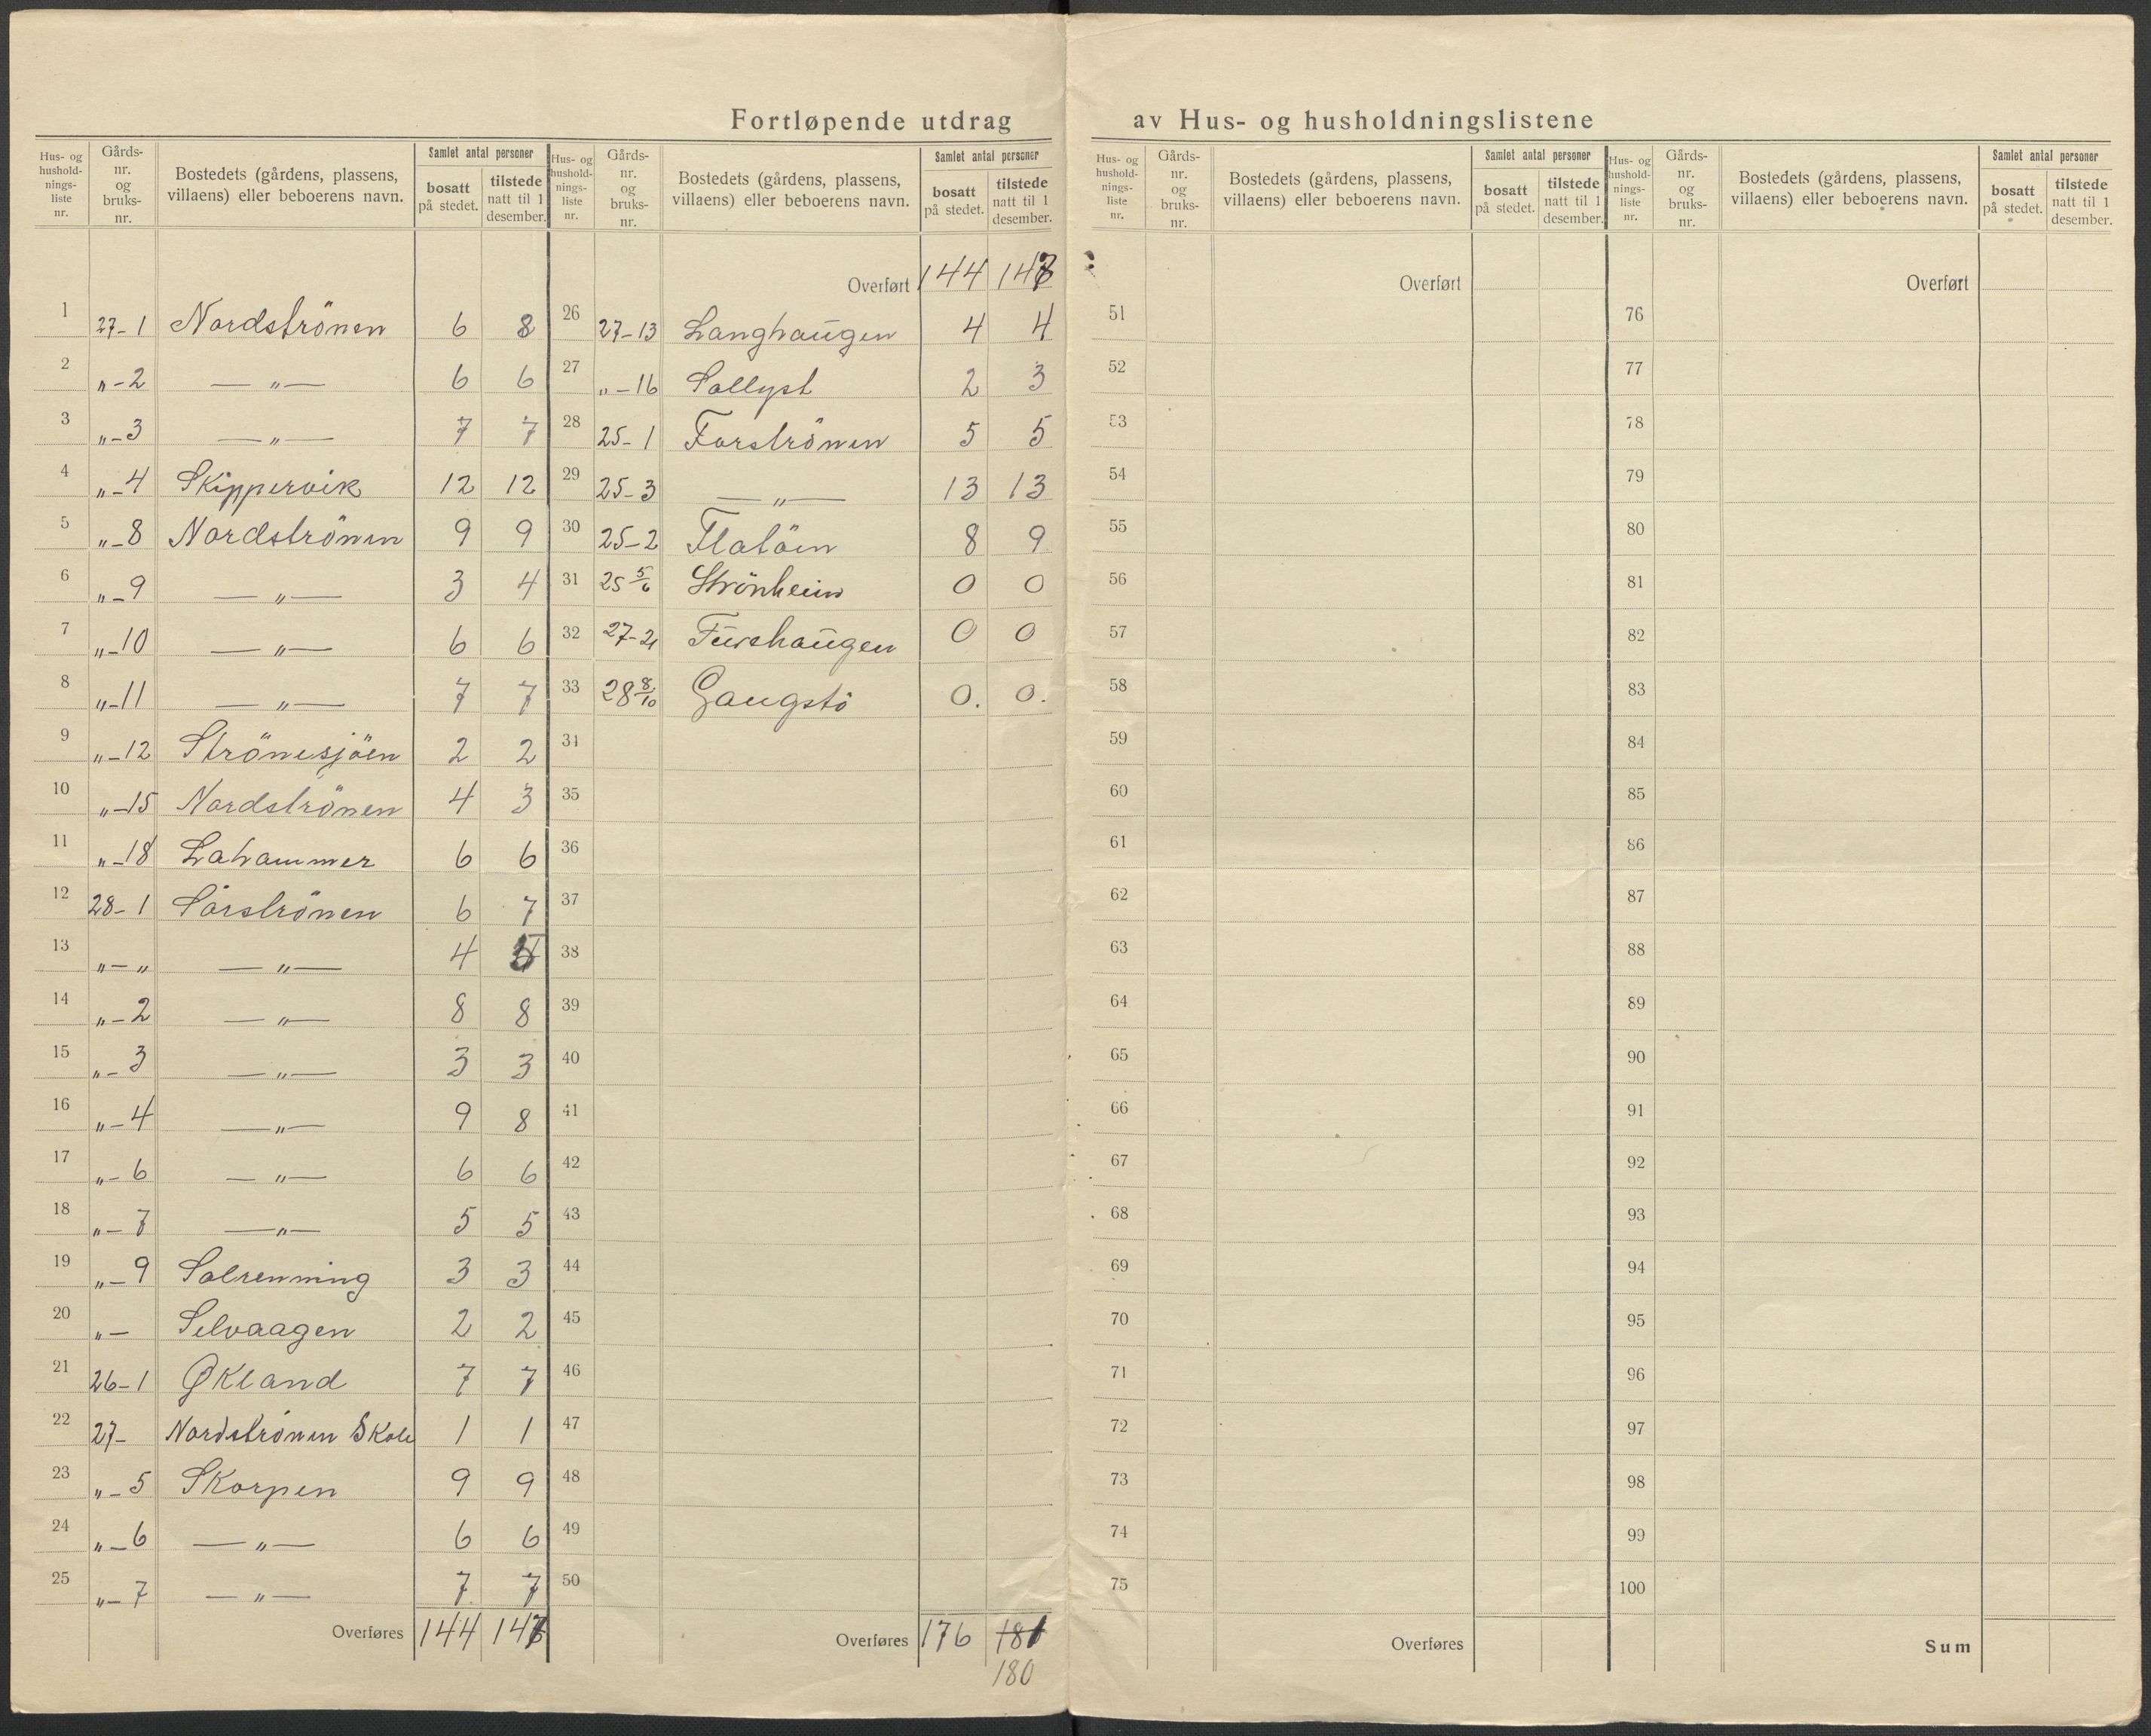 Fortløpende utdrag av Hus- og husholdningslistene
Hus- og hushold-nings-liste nr. Gårds-nr. og bruks-nr. Bostedets (gårdens, plassens, villaens) eller beboerens navn. Samlet antal personer bosatt på stedet. tilstede natt til 1 desember.
1 27-1 Nordströnen 6 8
2 „-2 —„— 6 6
3 „-3 —„— 7 7
4 „-4 Skippervik 12 12
5 „-8 Nordströnen 9 9
6 „-9 —„— 3 4
7 „-10 —„— 6 6
8 „-11 —„— 7 7
9 „-12 Strönesjöen 2 2
10 „-15 Nordströnen 4 3
11 „-18 Lahammer 6 6
12 28-1 Sörströnen 6 7
13 „-„ —„— 4
14 „-2 —„— 8 8
15 „-3 —„— 3 3
16 „-4 —„— 9 8
17 „-6 —„— 6 6
18 „-7 —„— 5 5
19 „-9 Solrenning 3 3
20 „- Selvaagen 2 2
21 26-1 Økland 7 7
22 27- Nordströnen Skole 1 1
23 „-5 Skorpen 9 9
24 „-6 —„— 6 6
25 „-7 —„— 7 7
Overføres 144
Hus- og hushold-nings-liste nr. Gårds-nr. og bruks-nr. Bostedets (gårdens, plassens, villaens) eller beboerens navn. Samlet antal personer bosatt på stedet. tilstede natt til 1 desember.
Overført 144
26 27-13 Langhaugen 4 4
27 „-16 Sollyst 2 3
28 25-1 Forströnen 5 5
29 25-3 —„— 13 13
30 25-2 Flatöen 8 9
31 25 5/6 Strönheim 0 0
32 27-21 Furehaugen 0 0
33 28 8/10 Gaugstö 0. 0.
34
35
36
37
38
39
40
41
42
43
44
45
46
47
48
49
50
Overføres 176 181
180
Hus- og hushold-nings-liste nr. Gårds-nr. og bruks-nr. Bostedets (gårdens, plassens, villaens) eller beboerens navn. Samlet antal personer bosatt på stedet. tilstede natt til 1 desember.
Overført
51
52
53
54
55
56
57
58
59
60
61
62
63
64
65
66
67
68
69
70
71
72
73
74
75
Overføres
Hus- og hushold-nings-liste nr. Gårds-nr. og bruks-nr. Bostedets (gårdens, plassens, villaens) eller beboerens navn. Samlet antal personer bosatt på stedet. tilstede natt til 1 desember.
Overført
76
77
78
79
80
81
82
83
84
85
86
87
88
89
90
91
92
93
94
95
96
97
98
99
100
Sum